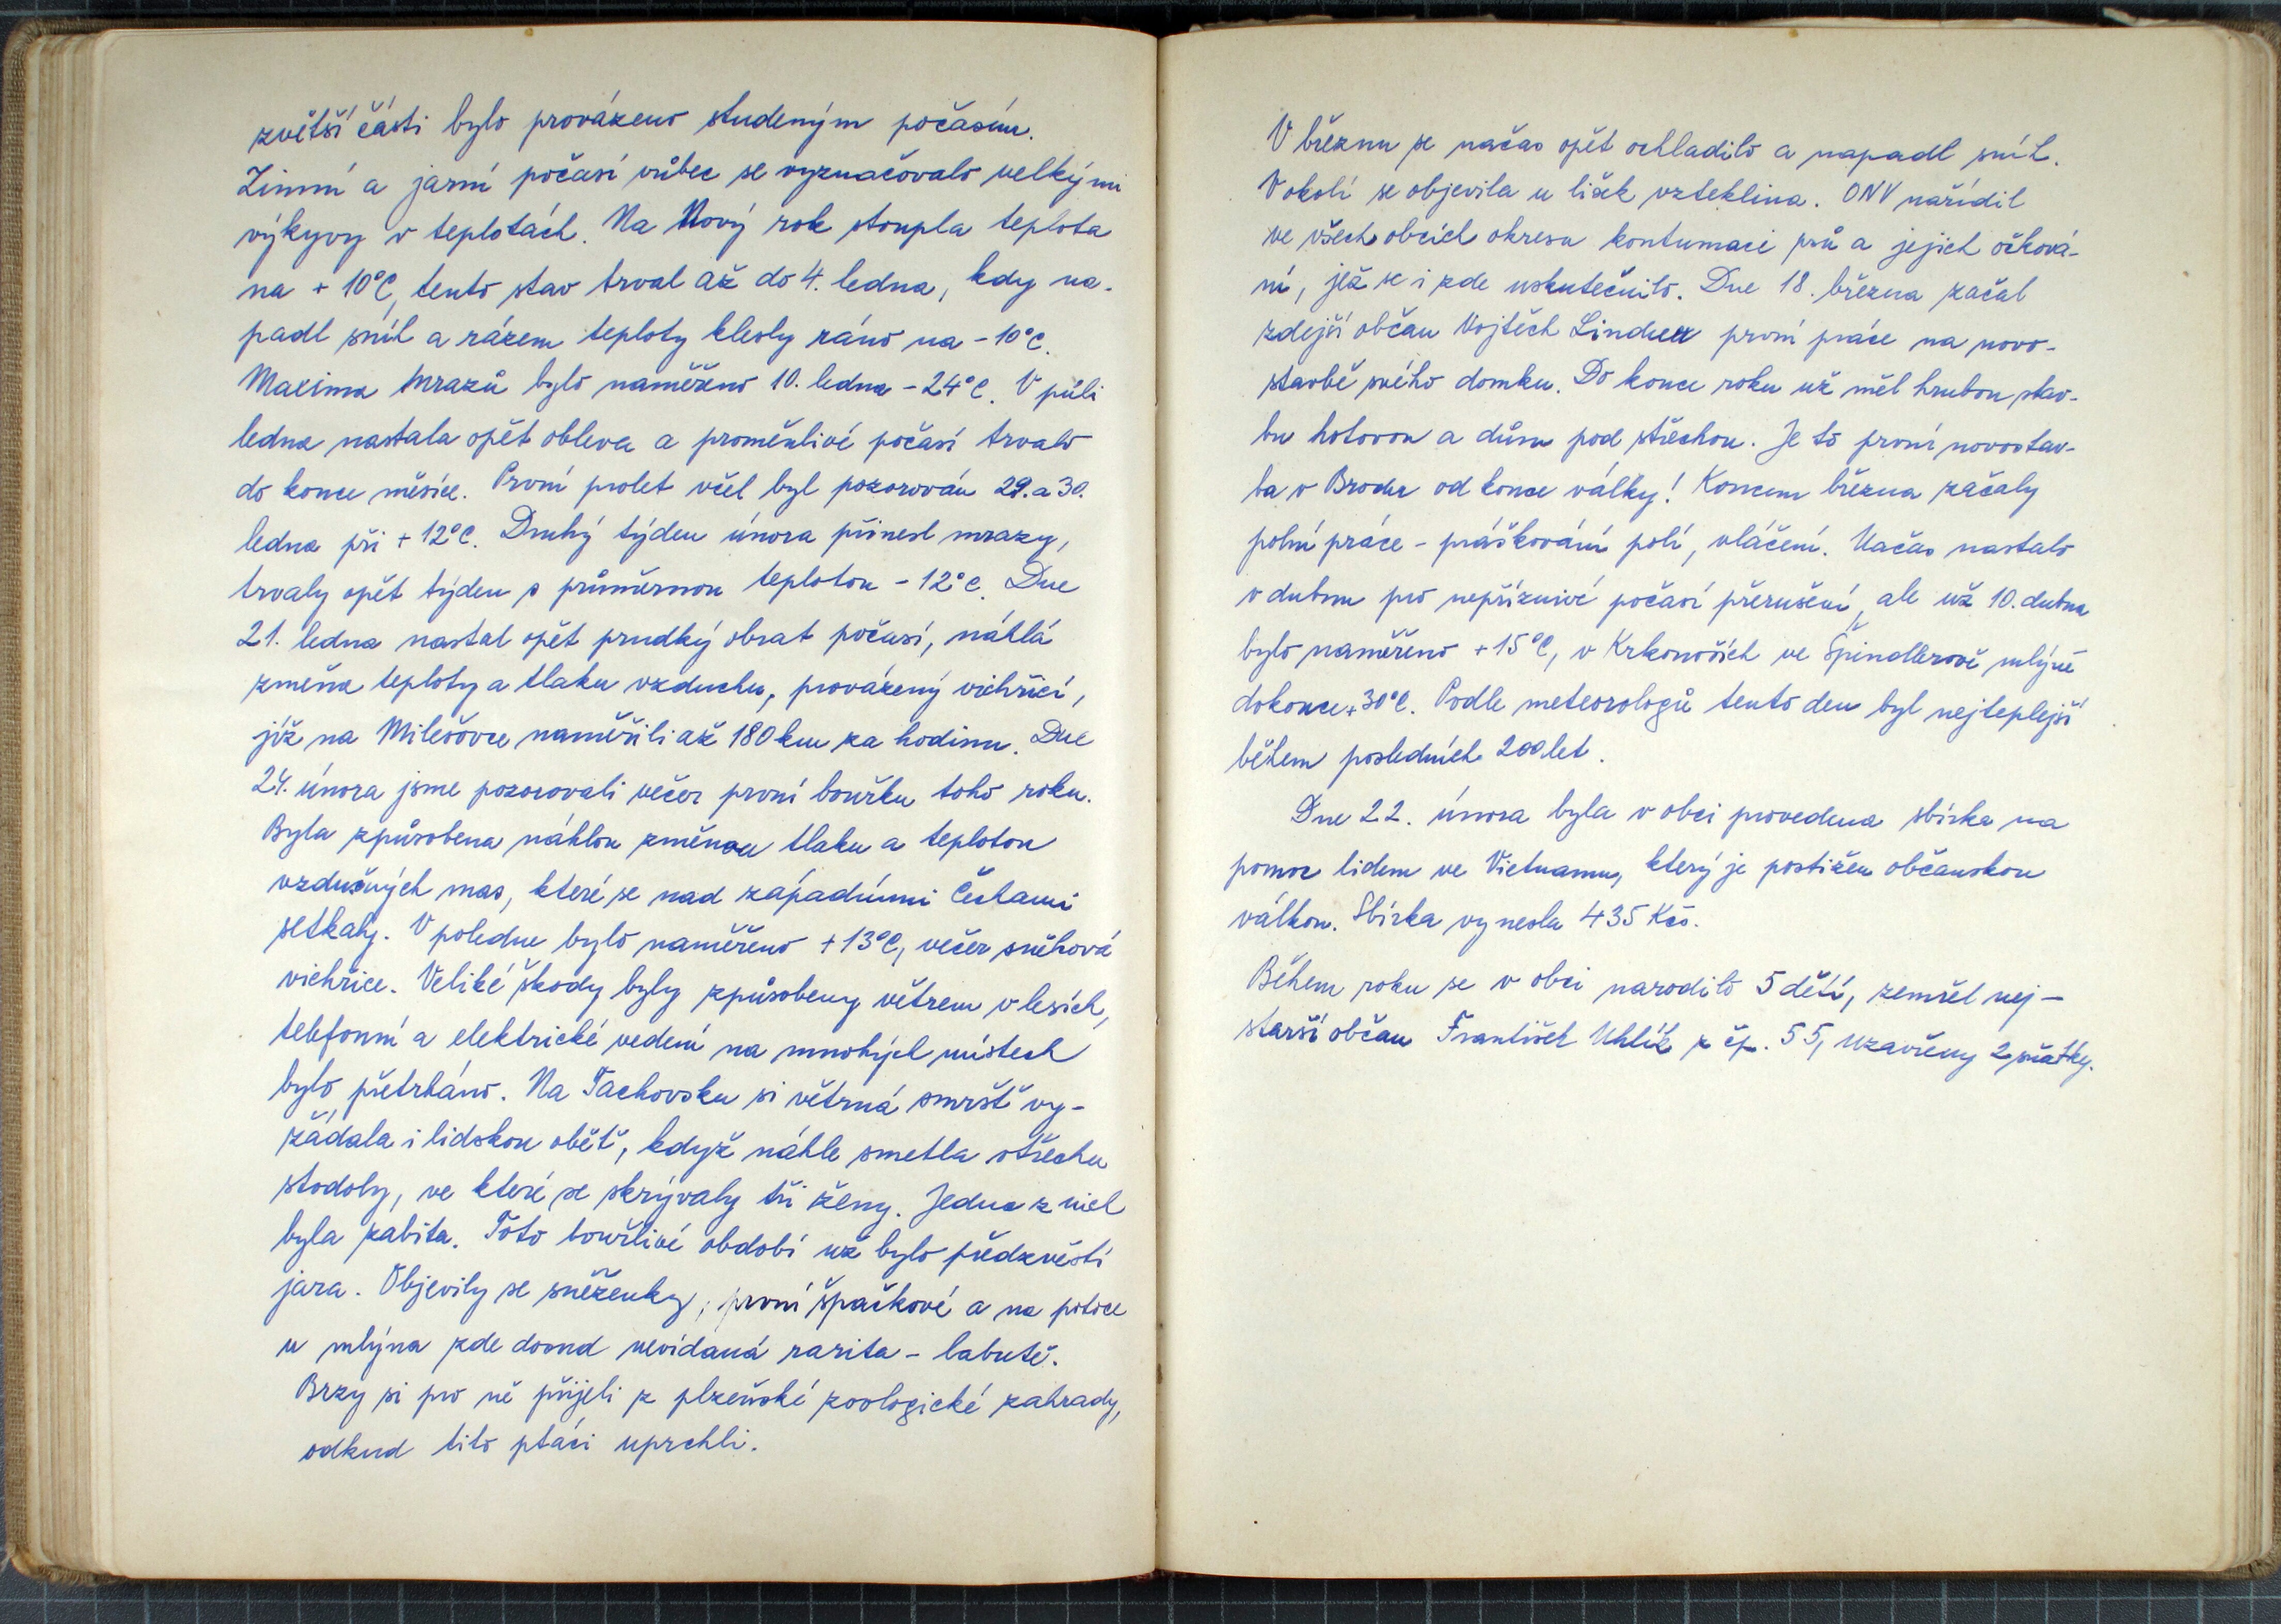 zvětší části bylo provázeno studeným počasím.
Zimní a jarní počasí vůbec se vyznačovalo velkými
výkyvy v teplotách. Na Nový rok stoupla teplota
na + 10°C, tento stav trval až do 4. ledna, kdy na-
padl sníh a rázem teploty klesly ráno na - 10°C.
Maxima mrazů bylo naměřeno 10. ledna - 24°C. V půli
ledna nastala opět obleva a proměnlivé počasí trvalo
do konce měsíce. První prolet včel byl pozorován 29. a 30.
ledna při + 12°C. Druhý týden února přinesl mrazy,
trvaly opět týden s průměrnou teplotou - 12°C. Dne
21. ledna nastal opět prudký obrat počasí, náhlá
změna teploty a tlaku vzduchu, provázený vichřicí,
již na Milešovce naměřili až 180 km za hodinu. Dne
24. února jsme pozorovali večer první bouřku toho roku.
Byla způsobena náhlou změnou tlaku a teplotou
vzdušných mas, které se nad západními Čechami
setkaly. V poledne bylo naměřeno +13°C, večer sněhová
vichřice. Veliké škody byly způsobeny větrem v lesích,
telefonní a elektrické vedení na mnohých místech
bylo přetrháno. Na Tachovsku si větrná smršť vy-
žádala i lidskou oběť, když náhle smetla střechu
stodoly, ve které se skrývaly tři ženy. Jedna z nich
byla zabita. Toto bouřlivé období už bylo předzvěstí
jara. Objevily se sněženky, první špačkové a na potoce
u mlýna zde dosud nevídaná rarita - labutě.
Brzy si pro ně přijeli z plzeňské zoologické zahrady,
odkud tito ptáci uprchli.
V březnu se načas opět ochladilo a napadl sníh.
V okolí se objevila u lišek vzteklina. ONV nařídil
ve všech obcích okresu kontumaci psů a jejich očková-
ní, jež se i zde uskutečnilo. Dne 18. března začal
zdejší občan Vojtěch Lindner první práce na novo-
stavbě svého domku. Do konce roku už měl hrubou stav-
bu hotovou a dům pod střechou. Je to první novostav-
ba v Brodu od konce války! Koncem března začaly
polní práce - práškování polí, vláčení. Načas nastalo
v dubnu pro nepříznivé počasí přerušení, ale už 10. dubna
bylo naměřeno +15°C, v Krkonoších ve Špindlerově mlýně
dokonce +30°C. Podle meteorologů tento den byl nejteplejší
během posledních 200 let.
Dne 22. února byla v obci provedena sbírka na
pomoc lidem ve Vietnamu, který je postižen občanskou
válkou. Sbírka vynesla 435 Kčs.
Během roku se v obci narodilo 5 dětí, zemřel nej-
starší občan František Uhlík z čp. 55, uzavřeny 2 sňatky.